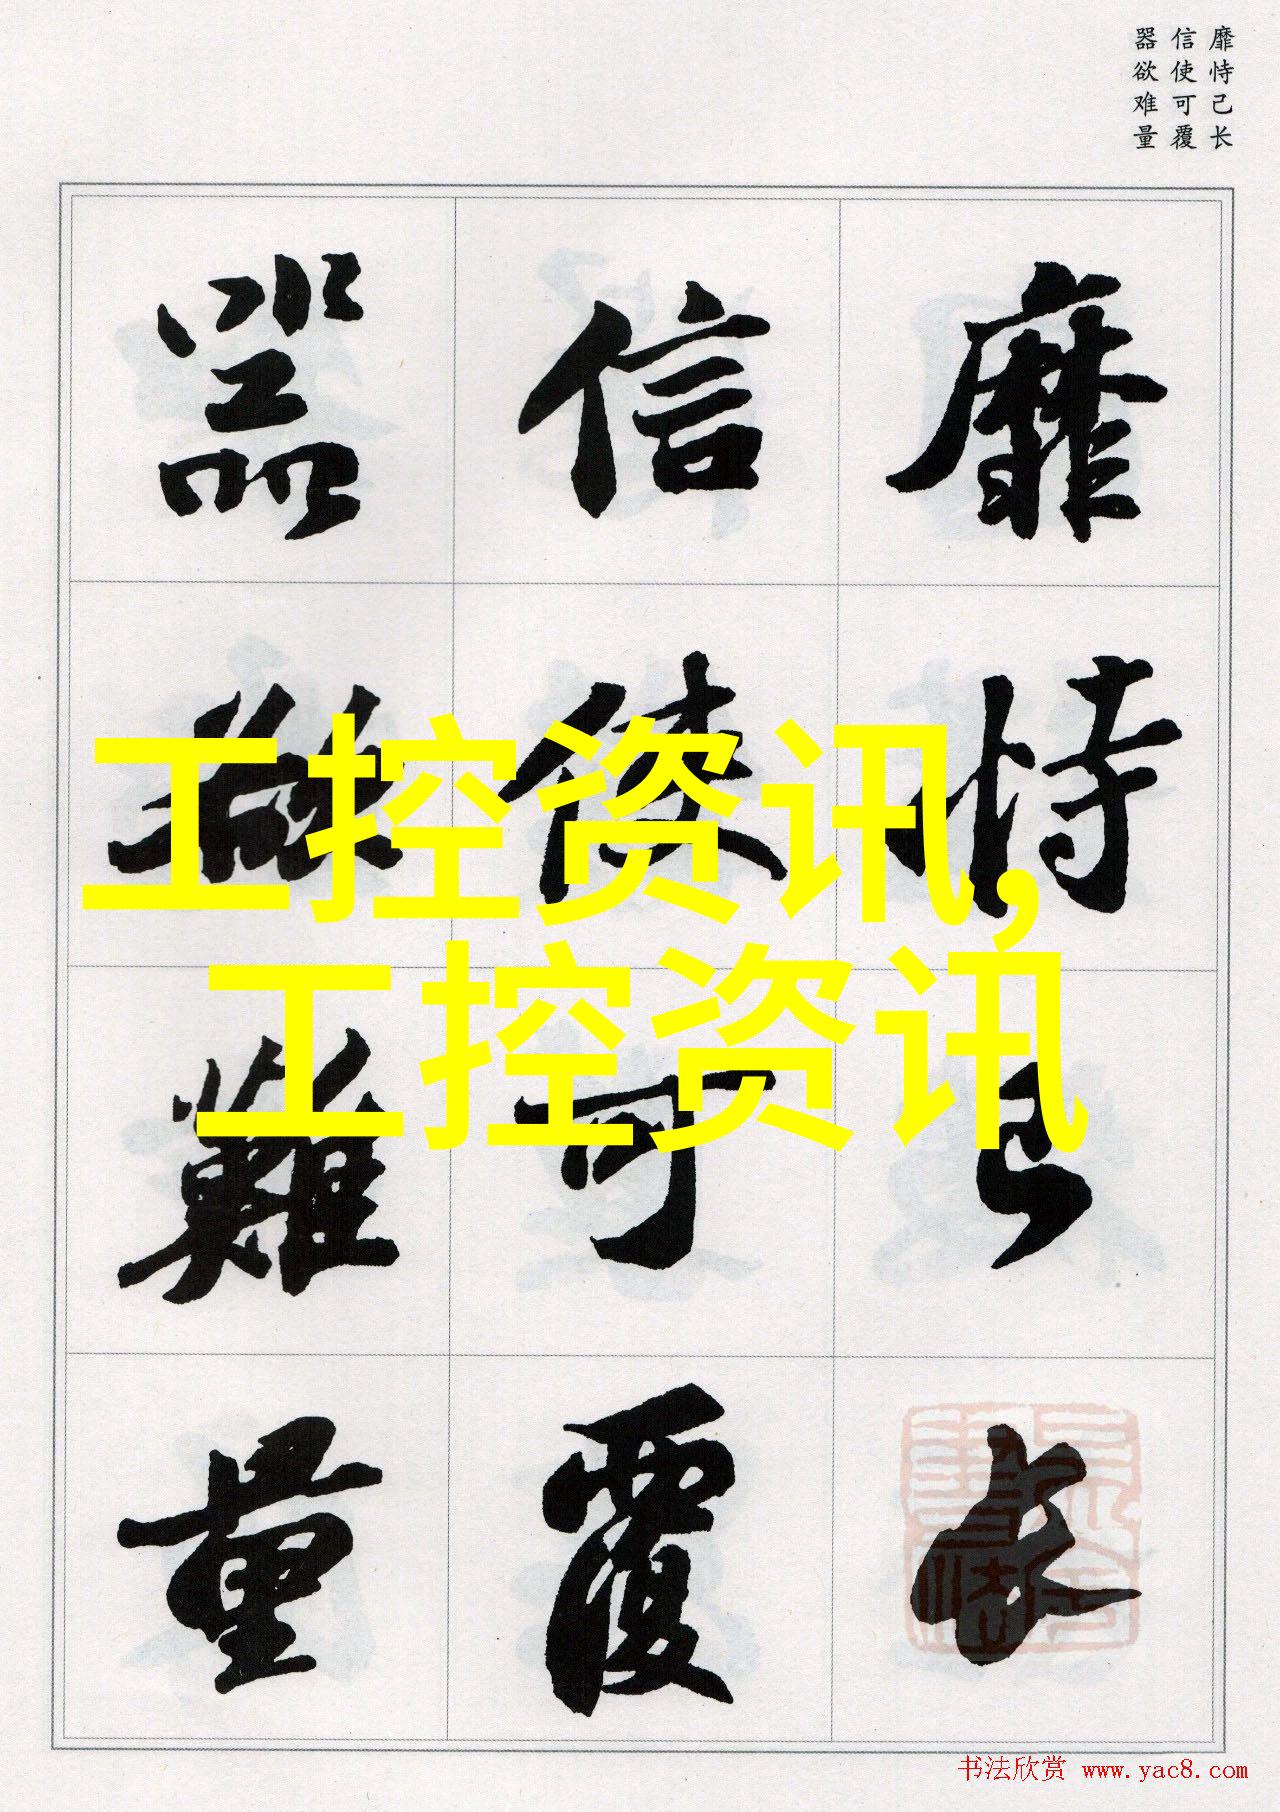 靡恃己长
信使可覆
器欲难量
靡恃己長
信使可覆
器欲難量
工控资讯,
工控资讯
书法欣赏 www.yac8.com